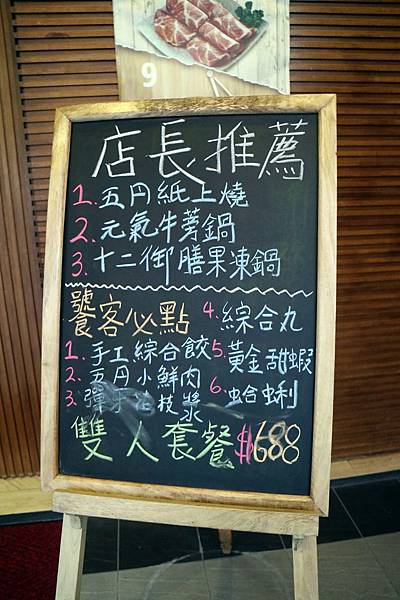 9
店長推薦
1. 五円紙上燒
2. 元氣牛蒡鍋
3. 十二御膳果凍鍋
饕客必點
1. 手工綜合餃
2. 五円小鮮肉
3. 彈牙油枝漿
4. 綜合丸
5. 黃金甜蝦
6. 蛤蜊
雙人套餐$1688